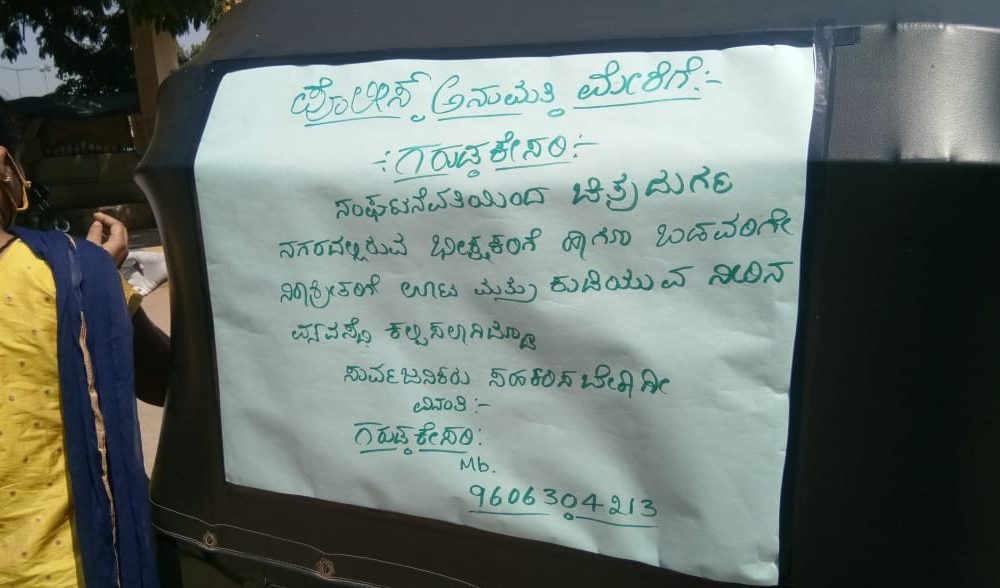 ಪೊಲೀಸ್ ಅನುಮತಿ ಮೇರೆಗೆ:-
-:ಗರುಡಕೇಸರಿ:-
ಸಂಘಟನೆವತಿಯಿಂದ ಚಿತ್ರದುರ್ಗ
ನಗರದಲ್ಲಿರುವ ಭೀಕ್ಷಕರಿಗೆ ಹಾಗೂ ಬಡವರಿಗೇ
ನಿರಾಶ್ರೀತರಿಗೆ ಊಟ ಮತ್ತು ಕುಡಿಯುವ ನೀರಿನ
ವ್ಯವಸ್ಥೆ ಕಲ್ಪಿಸಲಾಗಿದ್ದು
ಸಾರ್ವಜನಿಕರು ಸಹಕರಿಸಬೇಕಾಗಿ
ವಿನಂತಿ:-
ಗರುಡಕೇಸರಿ:
Mb.
9606304213